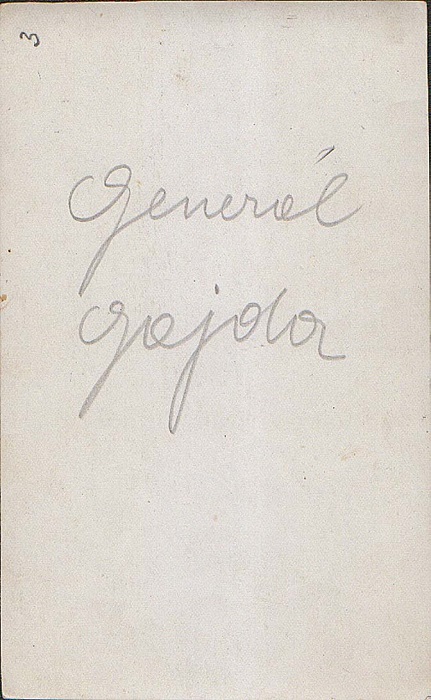 3
Generál
Gajda